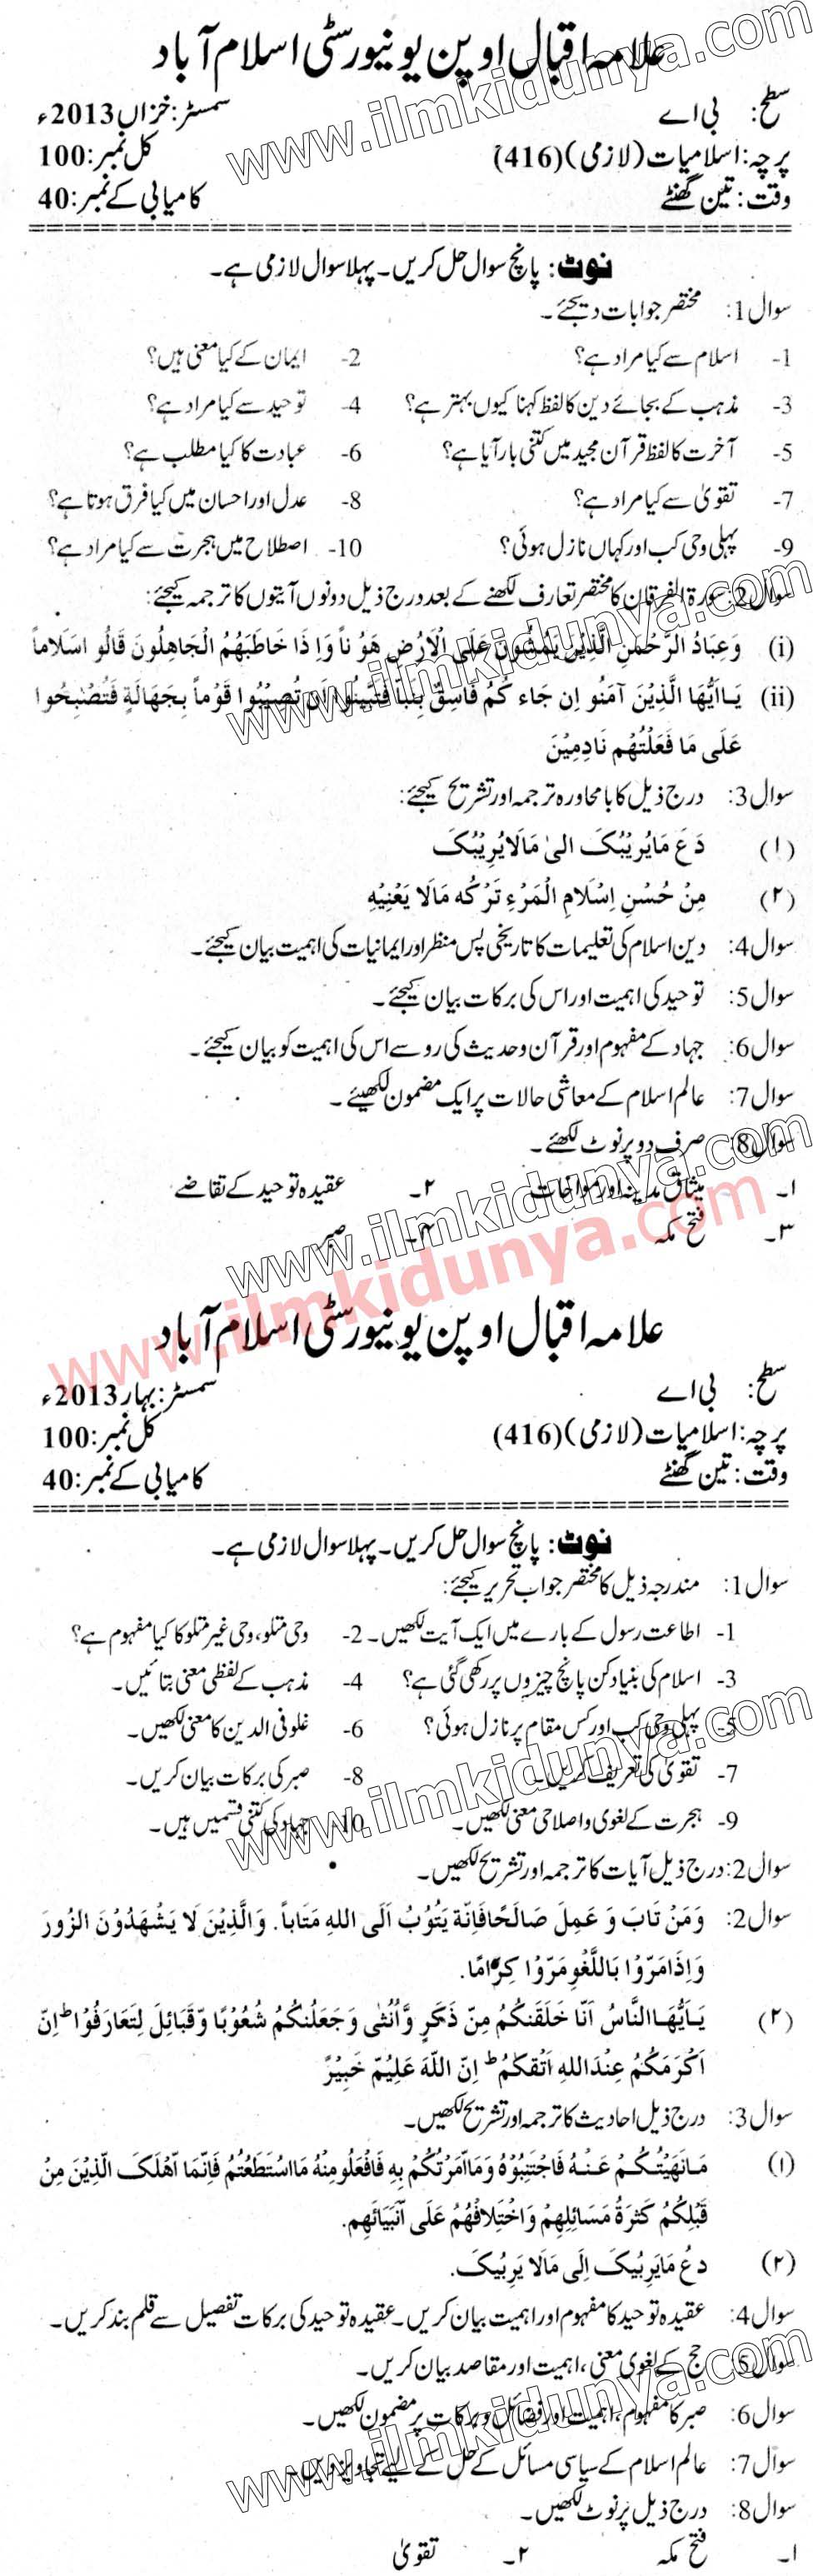 علامہ اقبال اوپن یونیورسٹی اسلام آباد
سطح: بی اے سمسٹر: خزاں 2013ء
پرچہ: اسلامیات (لازمی) (416) کل نمبر: 100
وقت: تین گھنٹے کامیابی کے نمبر: 40
نوٹ: پانچ سوال حل کریں۔ پہلا سوال لازمی ہے۔
سوال 1: مختصر جوابات دیجئے۔
1- اسلام سے کیا مراد ہے؟ 2- ایمان کے کیا معنی ہیں؟
3- مذہب کے بجائے دین کا لفظ کہنا کیوں بہتر ہے؟ 4- توحید سے کیا مراد ہے؟
5- آخرت کا لفظ قرآن مجید میں کتنی بار آیا ہے؟ 6- عبادت کا کیا مطلب ہے؟
7- تقویٰ سے کیا مراد ہے؟ 8- عدل اور احسان میں کیا فرق ہوتا ہے؟
9- پہلی وحی کب اور کہاں نازل ہوئی؟ 10- اصطلاح میں ہجرت سے کیا مراد ہے؟
سوال 2: سورۃ الفرقان کا مختصر تعارف لکھنے کے بعد درج ذیل دونوں آیتوں کا ترجمہ کیجئے:
(i) وَعِبَادُ الرَّحْمٰنِ الَّذِیْنَ یَمْشُوْنَ عَلَی الْاَرْضِ هَوْ ناً وَاِ ذَا خَاطَبَهُمُ الْجَاهِلُونَ قَالُو اسَلَاماً
(ii) یَـااَیُّهَا الَّذِیْنَ آمَنُو اِن جَاء کُمْ فَاسِقٌ بِنَبَأٍ فَتَبَیَّنُوا أَن تُصِیْبُوا قَوْماً بِجَهَالَةٍ فَتُصْبِحُوا
عَلَی مَا فَعَلْتُهُم نَادِمِیْنَ
سوال 3: درج ذیل کا بامحاورہ ترجمہ اور تشریح کیجئے:
(۱) دَعَ مَایُرِیْبُکَ الیٰ مَالَایُرِیْبُکَ
(۲) مِنْ حُسْنِ اِسْلَامِ الْمَرْءِ تَرْکُه مَالَا یَعْنِیْهِ
سوال 4: دین اسلام کی تعلیمات کا تاریخی پس منظر اور ایمانیات کی اہمیت بیان کیجئے۔
سوال 5: توحید کی اہمیت اور اس کی برکات بیان کیجئے۔
سوال 6: جہاد کے مفہوم اور قرآن و حدیث کی رو سے اس کی اہمیت کو بیان کیجئے۔
سوال 7: عالم اسلام کے معاشی حالات پر ایک مضمون لکھیئے۔
سوال 8: صرف دو پر نوٹ لکھئے۔
۱۔ میثاق مدینہ اور مواخات ۲۔ عقیدہ توحید کے تقاضے
۳۔ فتح مکہ ۴۔ صبر
علامہ اقبال اوپن یونیورسٹی اسلام آباد
سطح: بی اے سمسٹر: بہار 2013ء
پرچہ: اسلامیات (لازمی) (416) کل نمبر: 100
وقت: تین گھنٹے کامیابی کے نمبر: 40
نوٹ: پانچ سوال حل کریں۔ پہلا سوال لازمی ہے۔
سوال 1: مندرجہ ذیل کا مختصر جواب تحریر کیجئے:
1- اطاعت رسول کے بارے میں ایک آیت لکھیں۔ 2- وحی متلو، وحی غیر متلو کا کیا مفہوم ہے؟
3- اسلام کی بنیاد کن پانچ چیزوں پر رکھی گئی ہے؟ 4- مذہب کے لفظی معنی بتائیں۔
5- پہلی وحی کب اور کس مقام پر نازل ہوئی؟ 6- غلو فی الدین کا معنی لکھیں۔
7- تقویٰ کی تعریف کریں۔ 8- صبر کی برکات بیان کریں۔
9- ہجرت کے لغوی و اصلاحی معنی لکھیں۔ 10- جہاد کی کتنی قسمیں ہیں۔
سوال 2: درج ذیل آیات کا ترجمہ اور تشریح لکھیں۔
سوال 2: وَمَنْ تَابَ وَ عَمِلَ صَالِحًافَاِنَّهٗ یَتُوْبُ اَلَی اللهِ مَتَاباً. وَالَّذِیْنَ لَا یَشْهَدُوْنَ الزُورَ
وَاِذَامَرّوْا بَاللَّغْوِمَرّوْا کِرَامًا.
(۲) یَـاَیُّهَـاالنَّاسُ اَنَّا خَلَقَنکُمْ مِنّ ذَکَرٍ وَّاُنْثٰی وَجَعَلْنکُمْ شُعُوْبًا وّقَبَائِلَ لِتَعَارَفُوْا ؕ اِنّ
اَکْرَمَکُمْ عِنْدَاللهِ اَتْقٰکُمْ ؕ اِنّ اللّٰهَ عَلِیْمٌ خَبِیْرٌ
سوال 3: درج ذیل احادیث کا ترجمہ اور تشریح لکھیں۔
(۱) مَـانَهَیْتُکُـمْ عَنْـهُ فَاجْتَنِبُوْهُ وَمَااَمَرْتُکُمْ بِهٖ فَافْعَلُومِنْهُ مَااسْتَطَعْتُمْ فَاِنّمَا اَهْلَکَ الّذِیْنَ مِنْ
قَبْلِکُمْ کَثرَةُ مَسَائِلِهِمْ وَاخْتِلَافُهُمْ عَلَی اَنْبَیَائَهِم.
(۲) دعُ مَایَرِیْبکَ اِلَی مَالَا یَرِیْبکَ.
سوال 4: عقیدہ توحید کا مفہوم اور اہمیت بیان کریں۔ عقیدہ توحید کی برکات تفصیل سے قلم بند کریں۔
سوال 5: حج کے لغوی معنی، اہمیت اور مقاصد بیان کریں۔
سوال 6: صبر کا مفہوم، اہمیت اور فضائل و برکات پر مضمون لکھیں۔
سوال 7: عالم اسلام کے سیاسی مسائل کے حل کے لئے تجاویز دیں۔
سوال 8: درج ذیل پر نوٹ لکھیں۔
۱۔ فتح مکہ ۲۔ تقویٰ
www.ilmkidunya.com
www.ilmkidunya.com
www.ilmkidunya.com
www.ilmkidunya.com
www.ilmkidunya.com
www.ilmkidunya.com